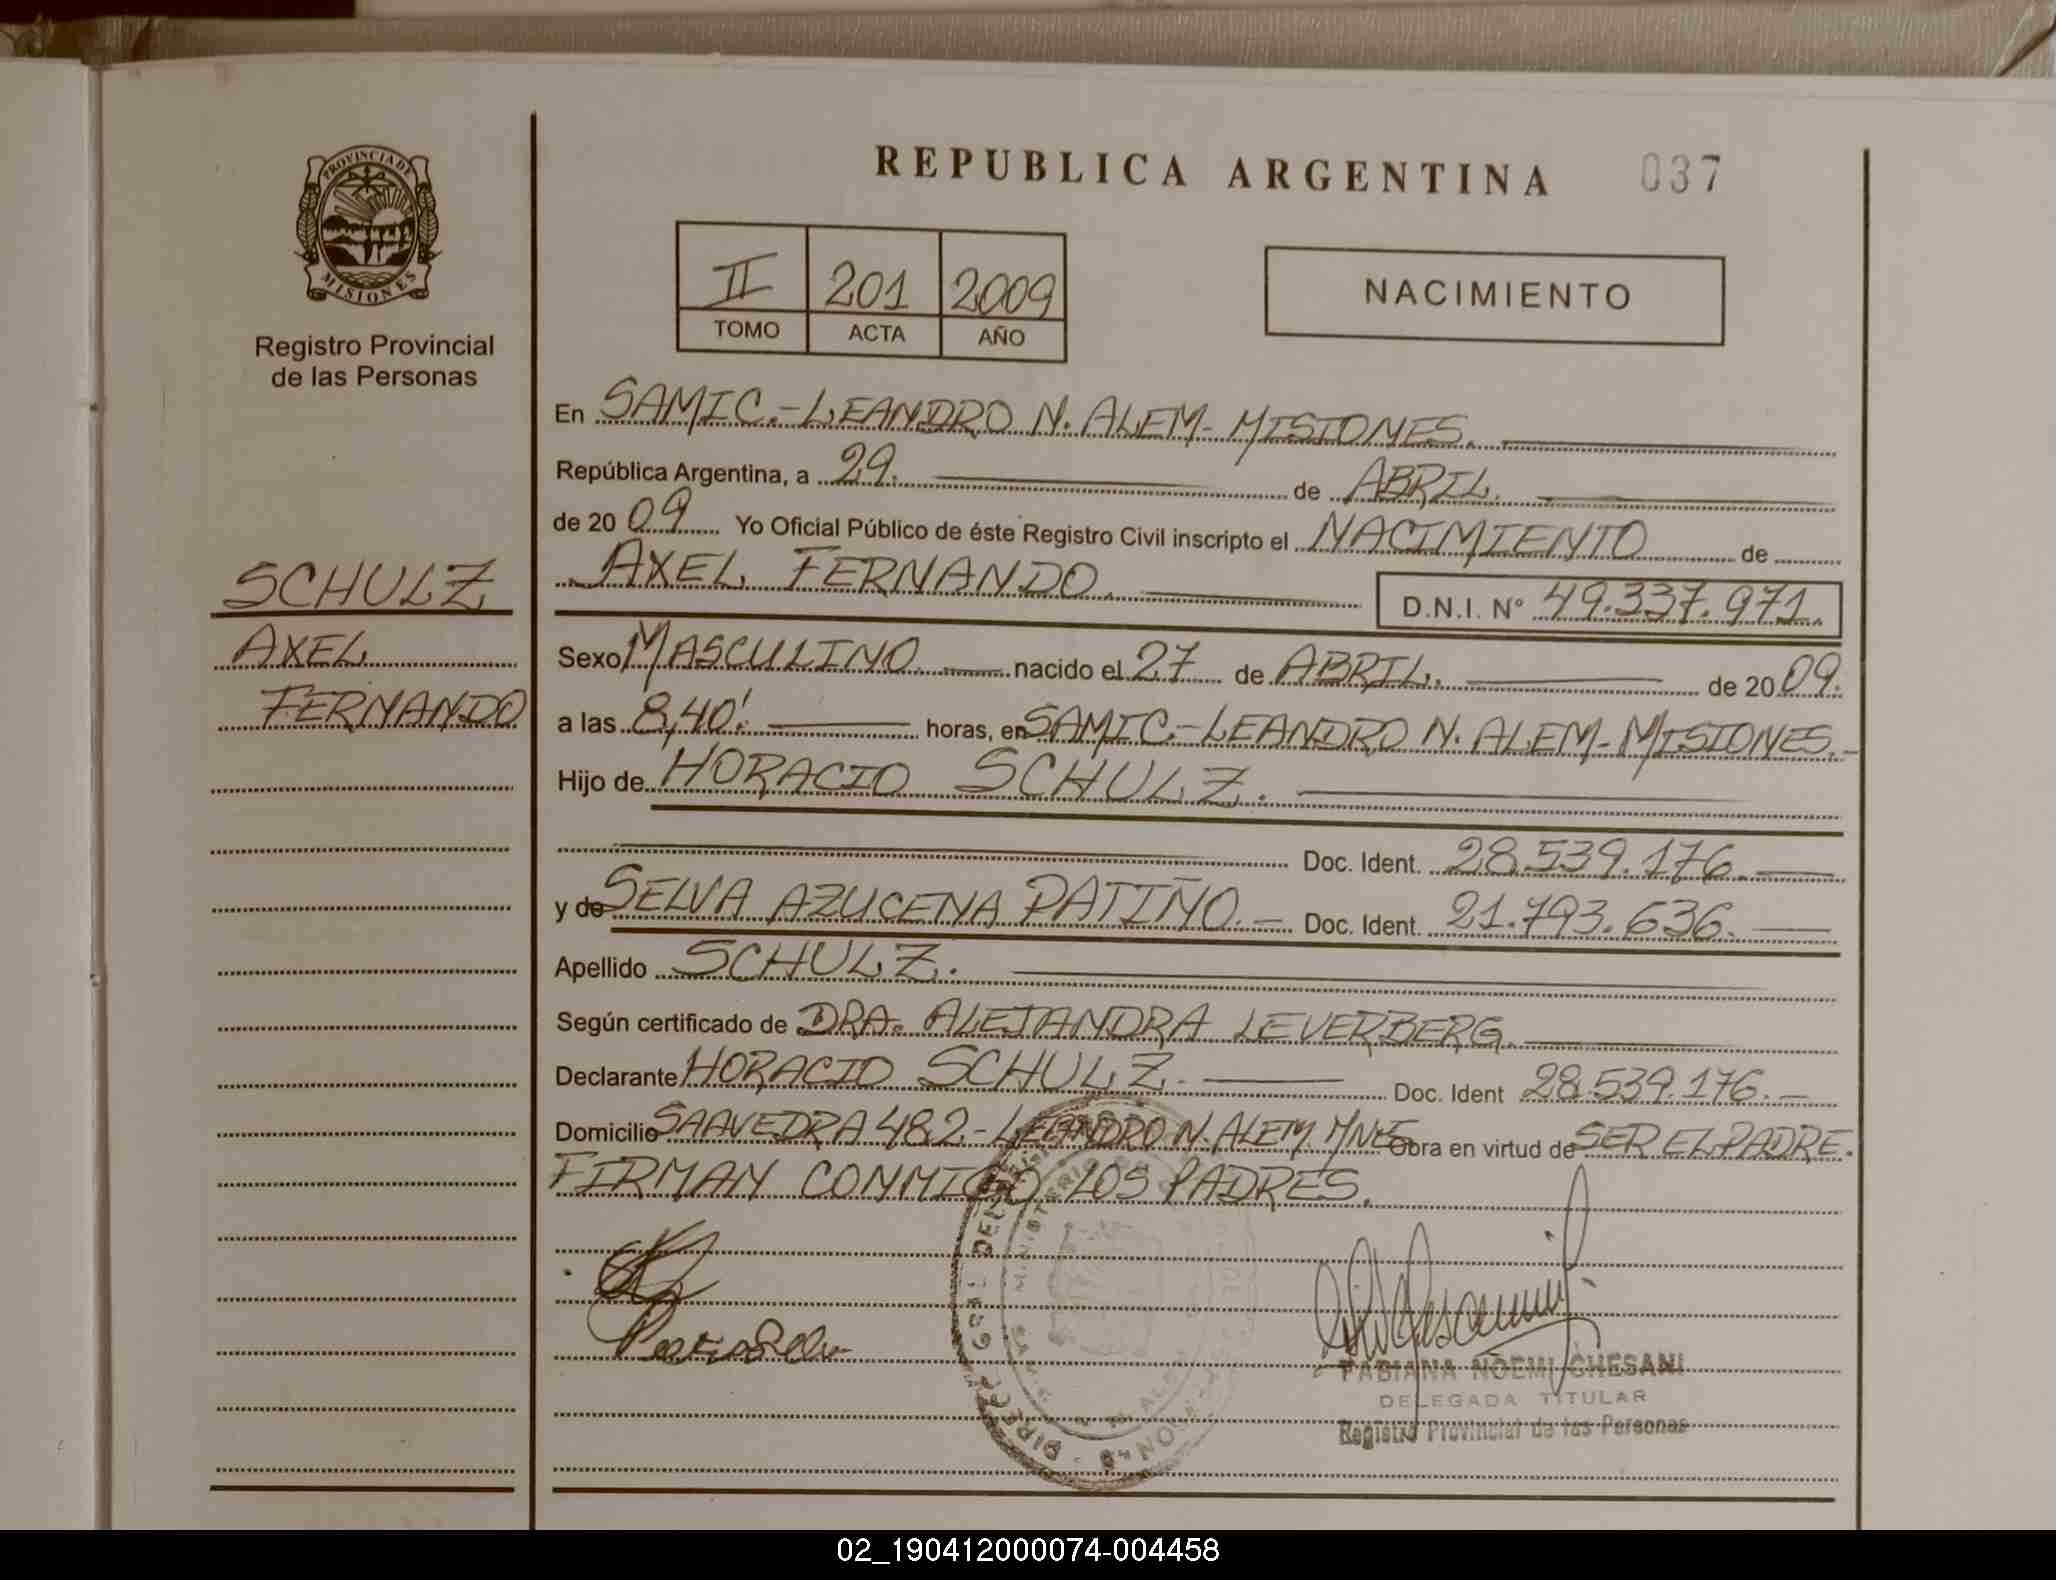 PROVINCIA DE
MISIONES
Registro Provincial
de las Personas
SCHULZ
AXEL
FERNANDO
REPUBLICA ARGENTINA 037
II 201 2009
TOMO ACTA AÑO
NACIMIENTO
En SAMIC.-LEANDRO N. ALEM- MISIONES.
República Argentina, a 29. de ABRIL.
de 20 09 Yo Oficial Público de éste Registro Civil inscripto el NACIMIENTO de
AXEL FERNANDO. D.N.I. N° 49.337.971.
Sexo MASCULINO. nacido el 27 de ABRIL. de 20 09.
a las 8,40'. horas, en SAMIC.-LEANDRO N. ALEM-MISIONES.-
Hijo de HORACIO SCHULZ.
Doc. Ident. 28.539.176.
y de SELVA AZUCENA PATIÑO.- Doc. Ident. 21.793.636.
Apellido SCHULZ.
Según certificado de DRA. ALEJANDRA LEVERBERG.
Declarante HORACIO SCHULZ. Doc. Ident 28.539.176.-
Domicilio SAAVEDRA 482.-LEANDRO N. ALEM. MNES. Obra en virtud de SER EL PADRE.
FIRMAN CONMIGO LOS PADRES.
FABIANA NOEMI CHESANI
DELEGADA TITULAR
Registro Provincial de las Personas
02_190412000074-004458